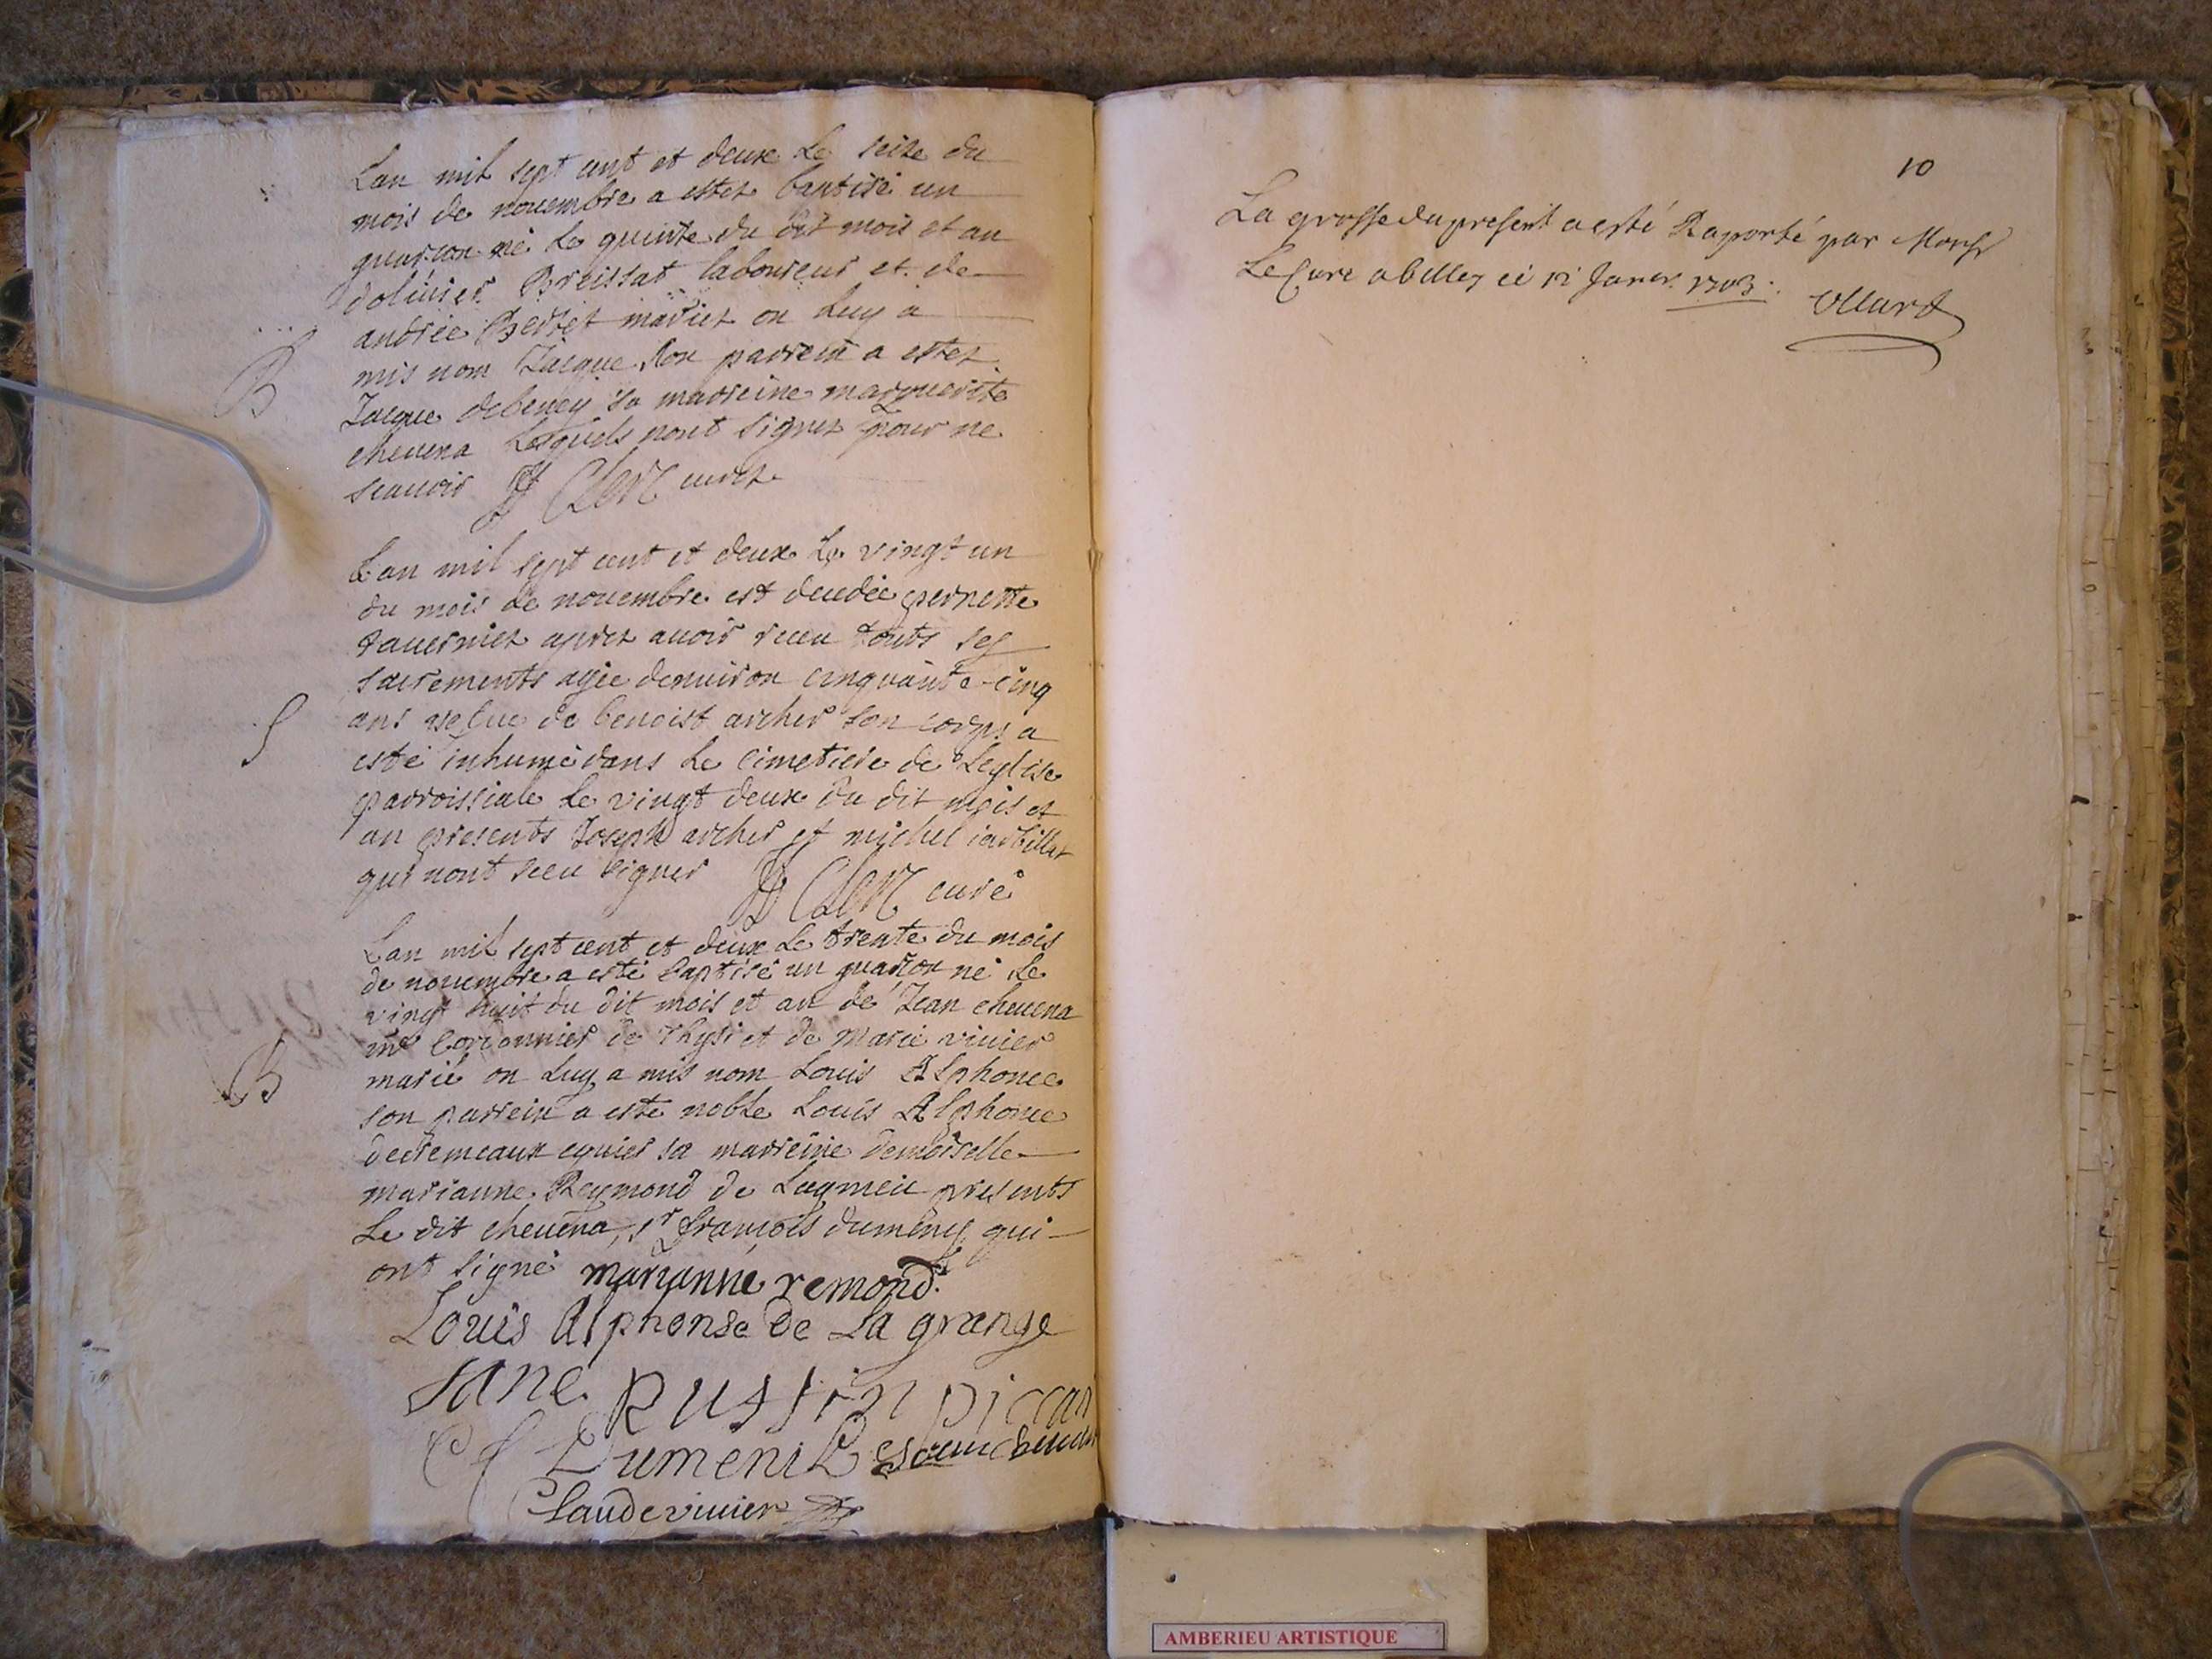 Lan mil sept cent et deux Le seize du
mois de nouembre a estez baptisé un
guarcon né Le quinze du dit mois et an
dolivier Breissat laboureur et de
andrée mariez on Luy a
mis nom Jacque son parrein a estez
Jacque debeney sa marreine marguerite
cheuena Lesquels nont signez pour ne
scauoir Clerc curez
B
Lan mil sept cent et deux Le vingt un
du mois de nouembre est decedée pernette
tauerniez aprez auoir receu touts ses
sacrements agée denuiron cinquante-cinq
ans de benoist archer son corps a
esté inhumé dans Le cimetiere de Leglise
parroissiale Le vingt deux du dit mois et
an presents Joseph archer et michel iarbillet
qui nont sceu signer Clerc curé
S
Lan mil sept cent et deux Le trente du mois
de nouembre a esté baptisé un guarcon né Le
vingt huit du dit mois et an de Jean cheuena
me Cordonnier de et de Marie viuier
marié on Luy a mis nom Louis Alphonce
son parrein a esté noble Louis Alphonce
decremeaux ecuier sa marreine demoiselle
marianne Reymond de Lagnieu presents
Le dit cheuena, sr francois dumeny qui
ont signé marianne remond.
B
Louis Alphonse de La grange
Jane Russin piccar
Dumenil
Claude viuier
10
La grosse du present a esté Raporté par Monsr
Le Curé a belley ce 12 Janer. 1703.